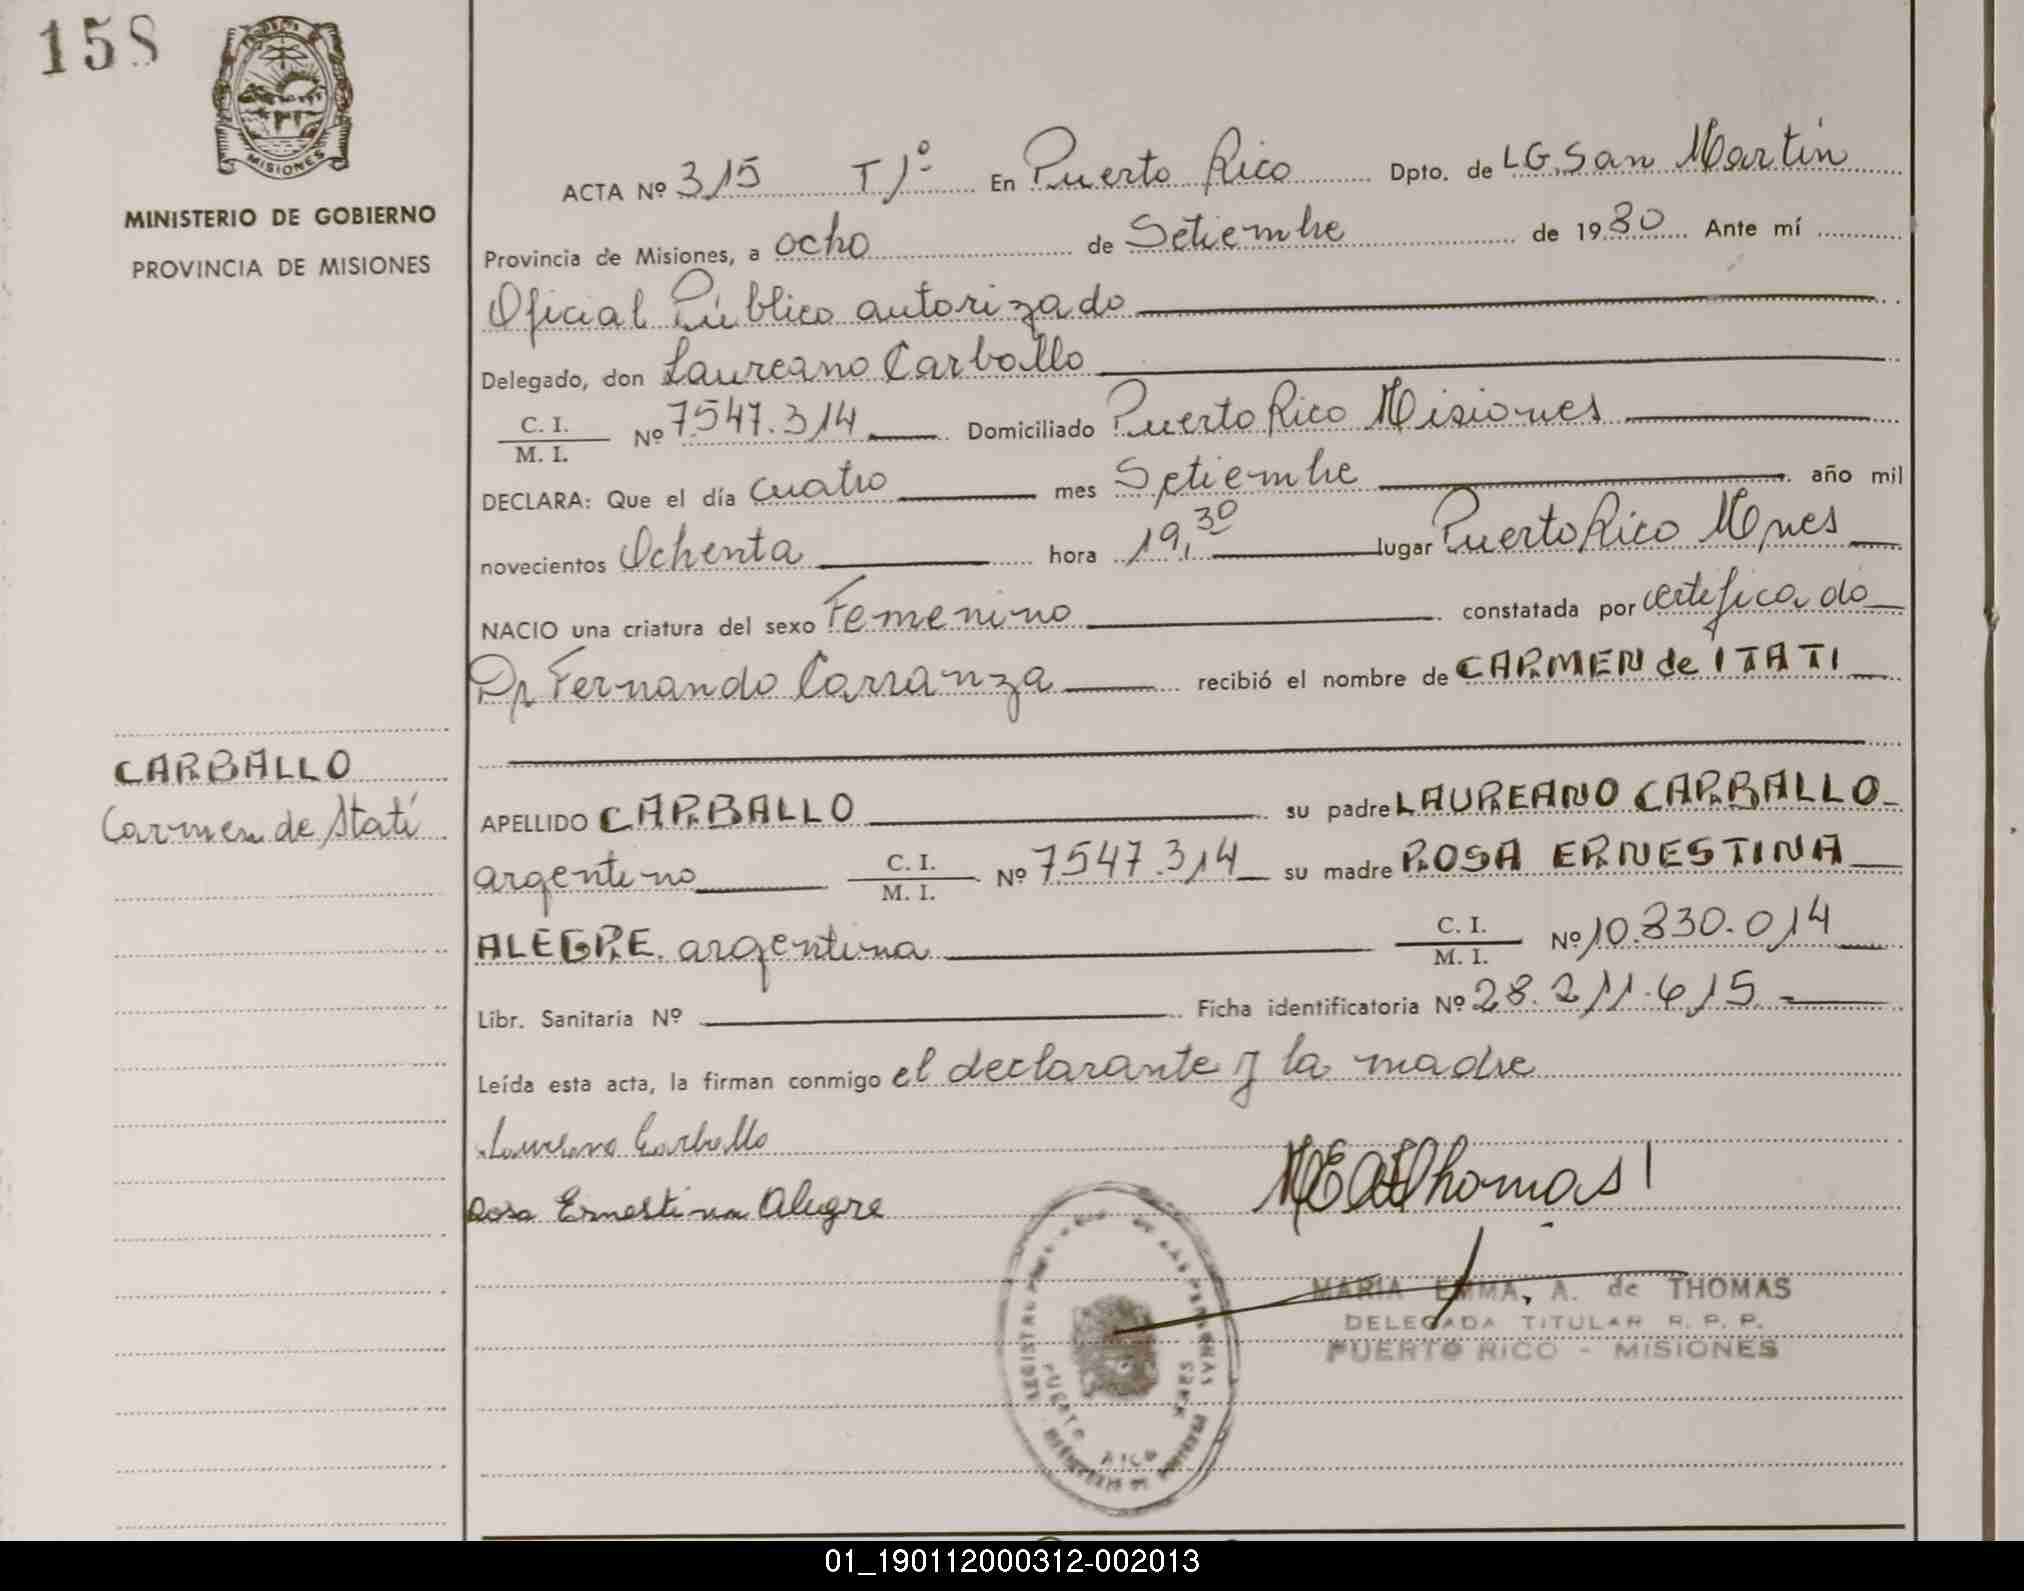 158
MISIONES
MINISTERIO DE GOBIERNO
PROVINCIA DE MISIONES
ACTA Nº 315 T 1º En Puerto Rico Dpto. de L.G. San Martín
Provincia de Misiones, a ocho de Setiembre de 1980 Ante mí
Oficial Público autorizado
Delegado, don Laureano Carballo
C. I. / M. I. Nº 7.547.314 Domiciliado Puerto Rico Misiones
DECLARA: Que el día cuatro mes Setiembre año mil
novecientos Ochenta hora 19,30 lugar Puerto Rico Mnes
NACIO una criatura del sexo Femenino constatada por certificado
Dr Fernando Carranza recibió el nombre de CARMEN de ITATI
CARBALLO
Carmen de Itatí
APELLIDO CARBALLO su padre LAUREANO CARBALLO
argentino C. I. / M. I. Nº 7.547.314 su madre ROSA ERNESTINA
ALEGRE argentina C. I. / M. I. Nº 10.830.014
Libr. Sanitaria Nº Ficha identificatoria Nº 28.211.615
Leída esta acta, la firman conmigo el declarante y la madre
Laureano Carballo
Rosa Ernestina Alegre
MARIA EMMA, A. de THOMAS
DELEGADA TITULAR R. P. P.
PUERTO RICO - MISIONES
01_190112000312-002013